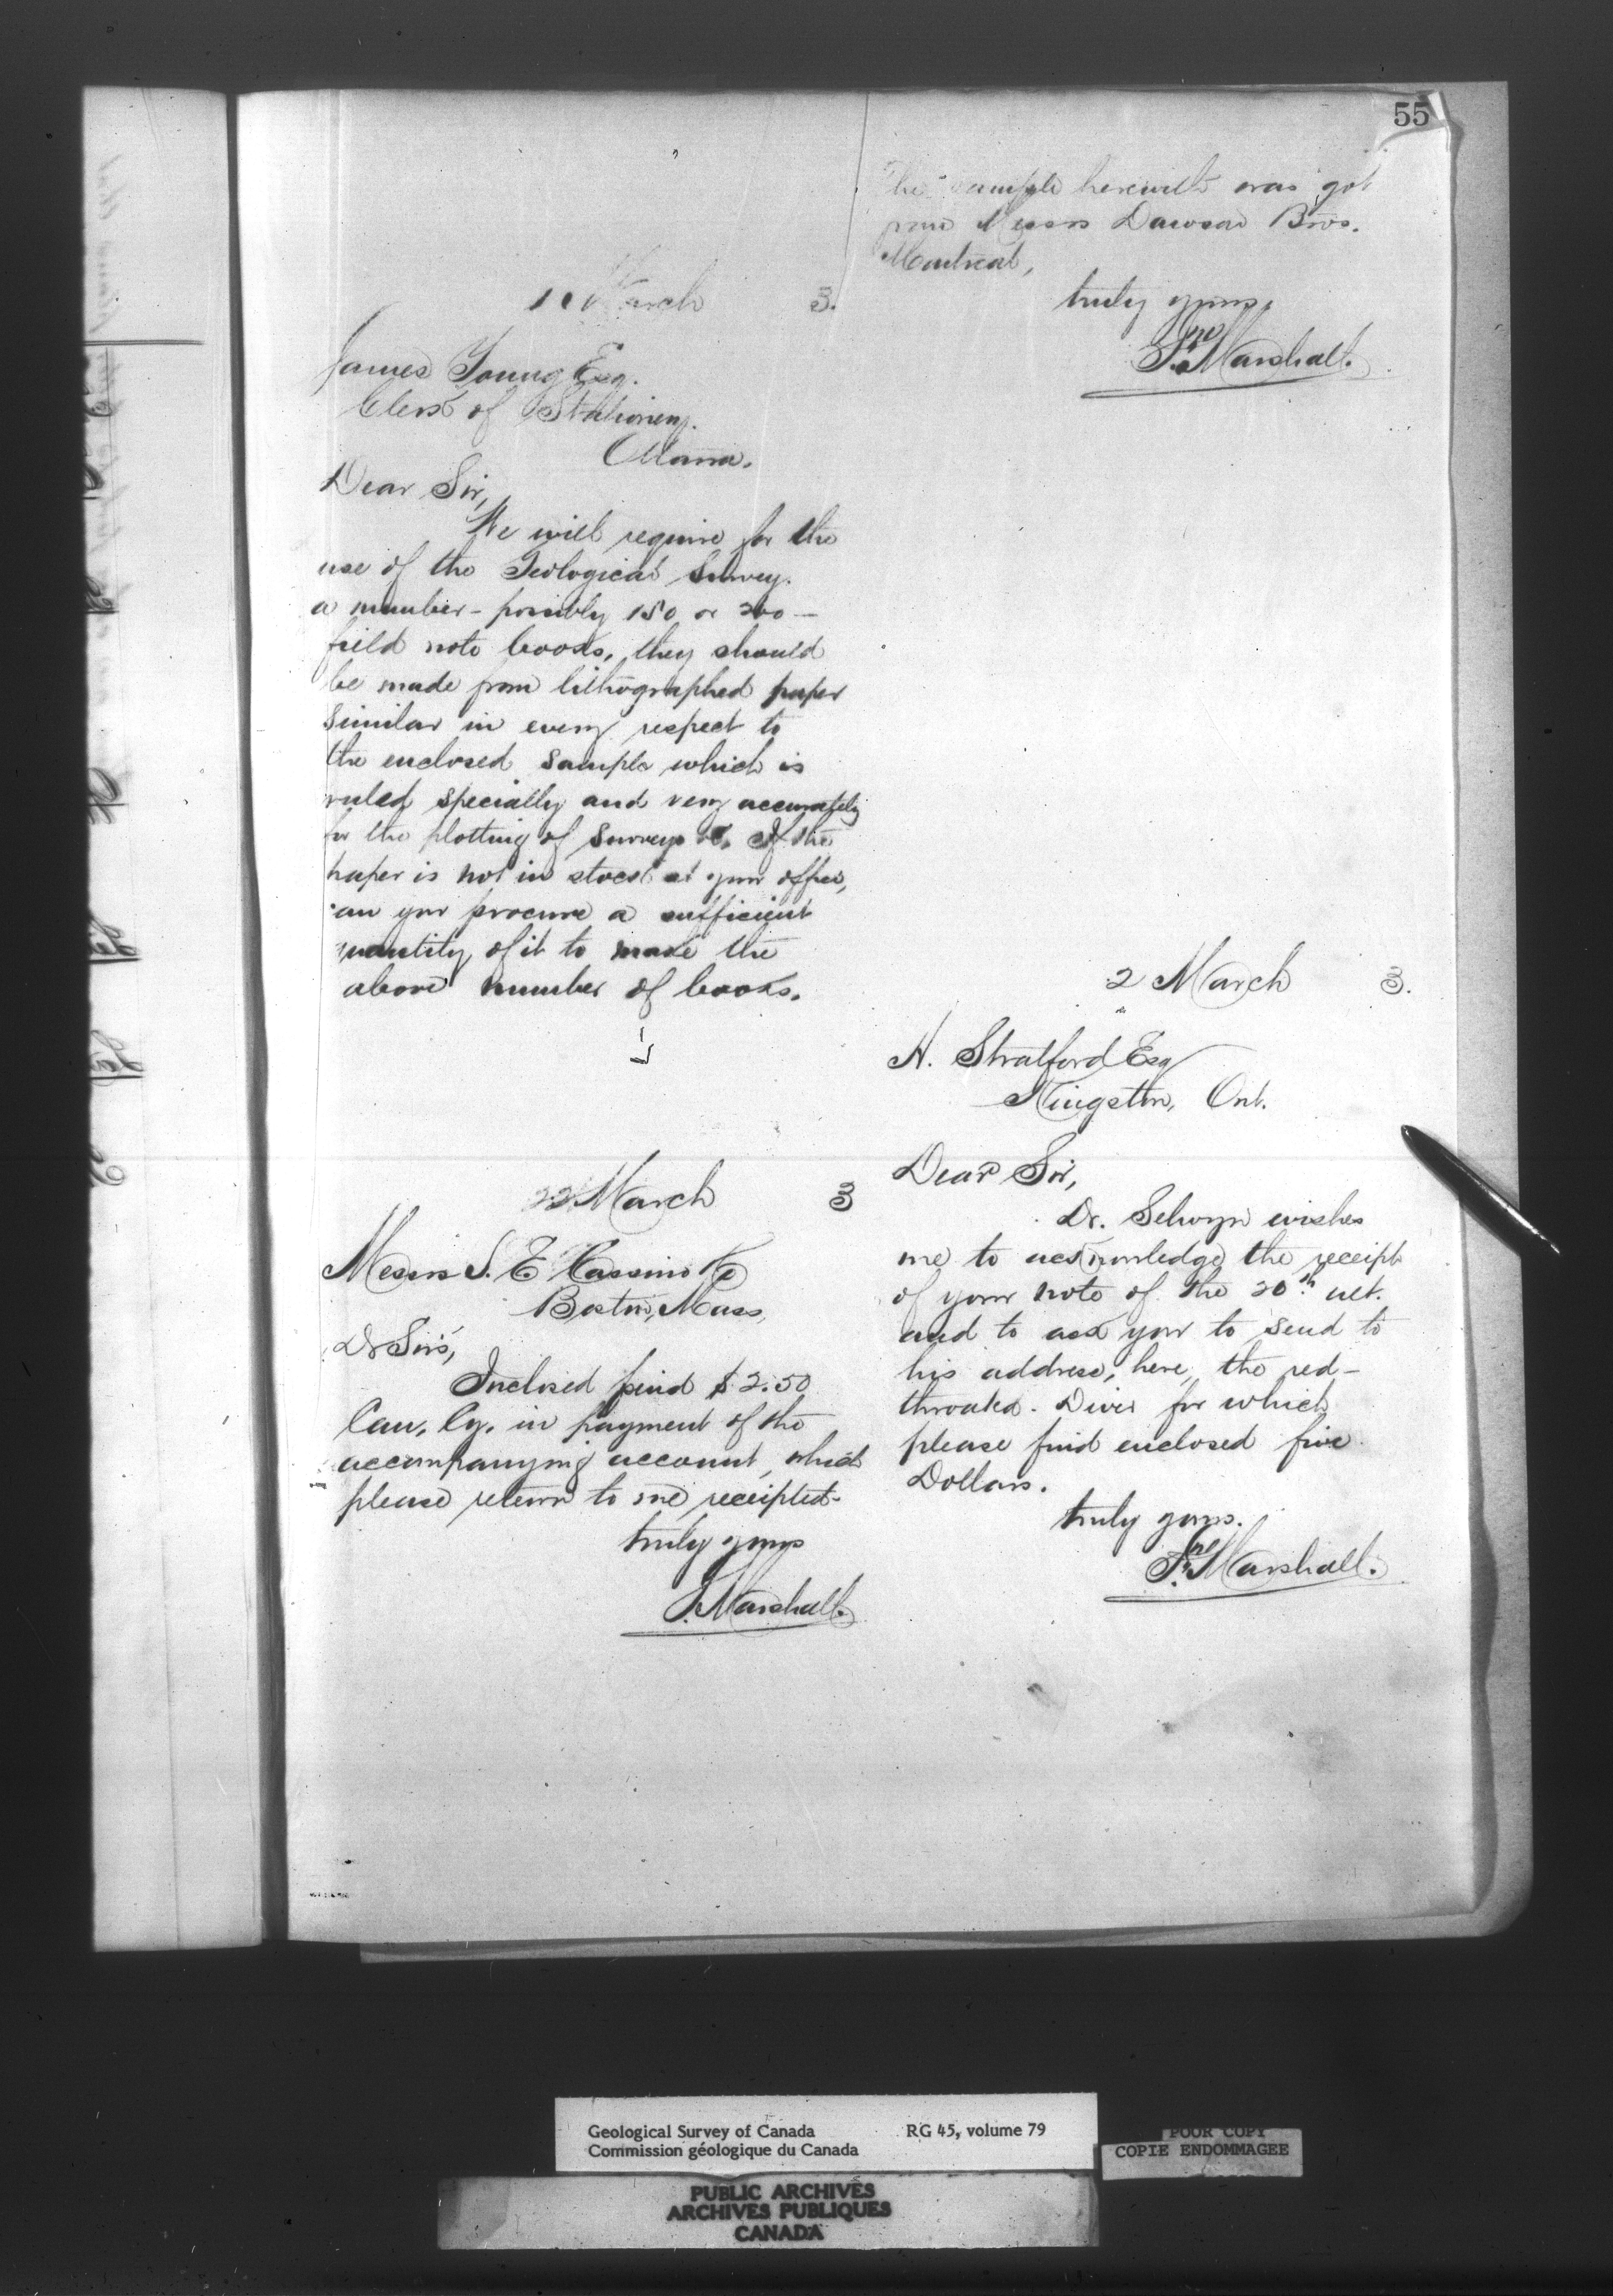 55
March 3.
James Young Esq.
Clerk of Stationery.
Ottawa.
Dear Sir,
We will require for the
use of the Geological Survey.
a number - possibly 150 or 200 -
field note books, they should
be made from lithographed paper
similar in every respect to
the enclosed sample which is
ruled specially and very accurately
for the plotting of surveys &c. If the
paper is not in stock at your office,
can you procure a sufficient
quantity of it to make the
above number of books.
The sample herewith was got
from Messrs Dawson Bros.
Montreal,
truly yours,
Marshall.
22 March 3
Messrs S. E. Cassino & Co
Boston, Mass,
Dr Sirs,
Inclosed find $2.50
Can. Cy. in payment of the
accompanying account, which
please return to me receipted.
truly yours
Marshall.
2 March 3.
H. Stratford Esq
Kingston, Ont.
Dear Sir,
Dr. Selwyn wishes
me to acknowledge the receipt
of your note of the 20th ult.
and to ask you to send to
his address, here, the red-
throated. Diver for which
please find enclosed five
Dollars.
truly yours.
Marshall.
Geological Survey of Canada RG 45, volume 79
Commission géologique du Canada
POOR COPY
COPIE ENDOMMAGEE
PUBLIC ARCHIVES
ARCHIVES PUBLIQUES
CANADA